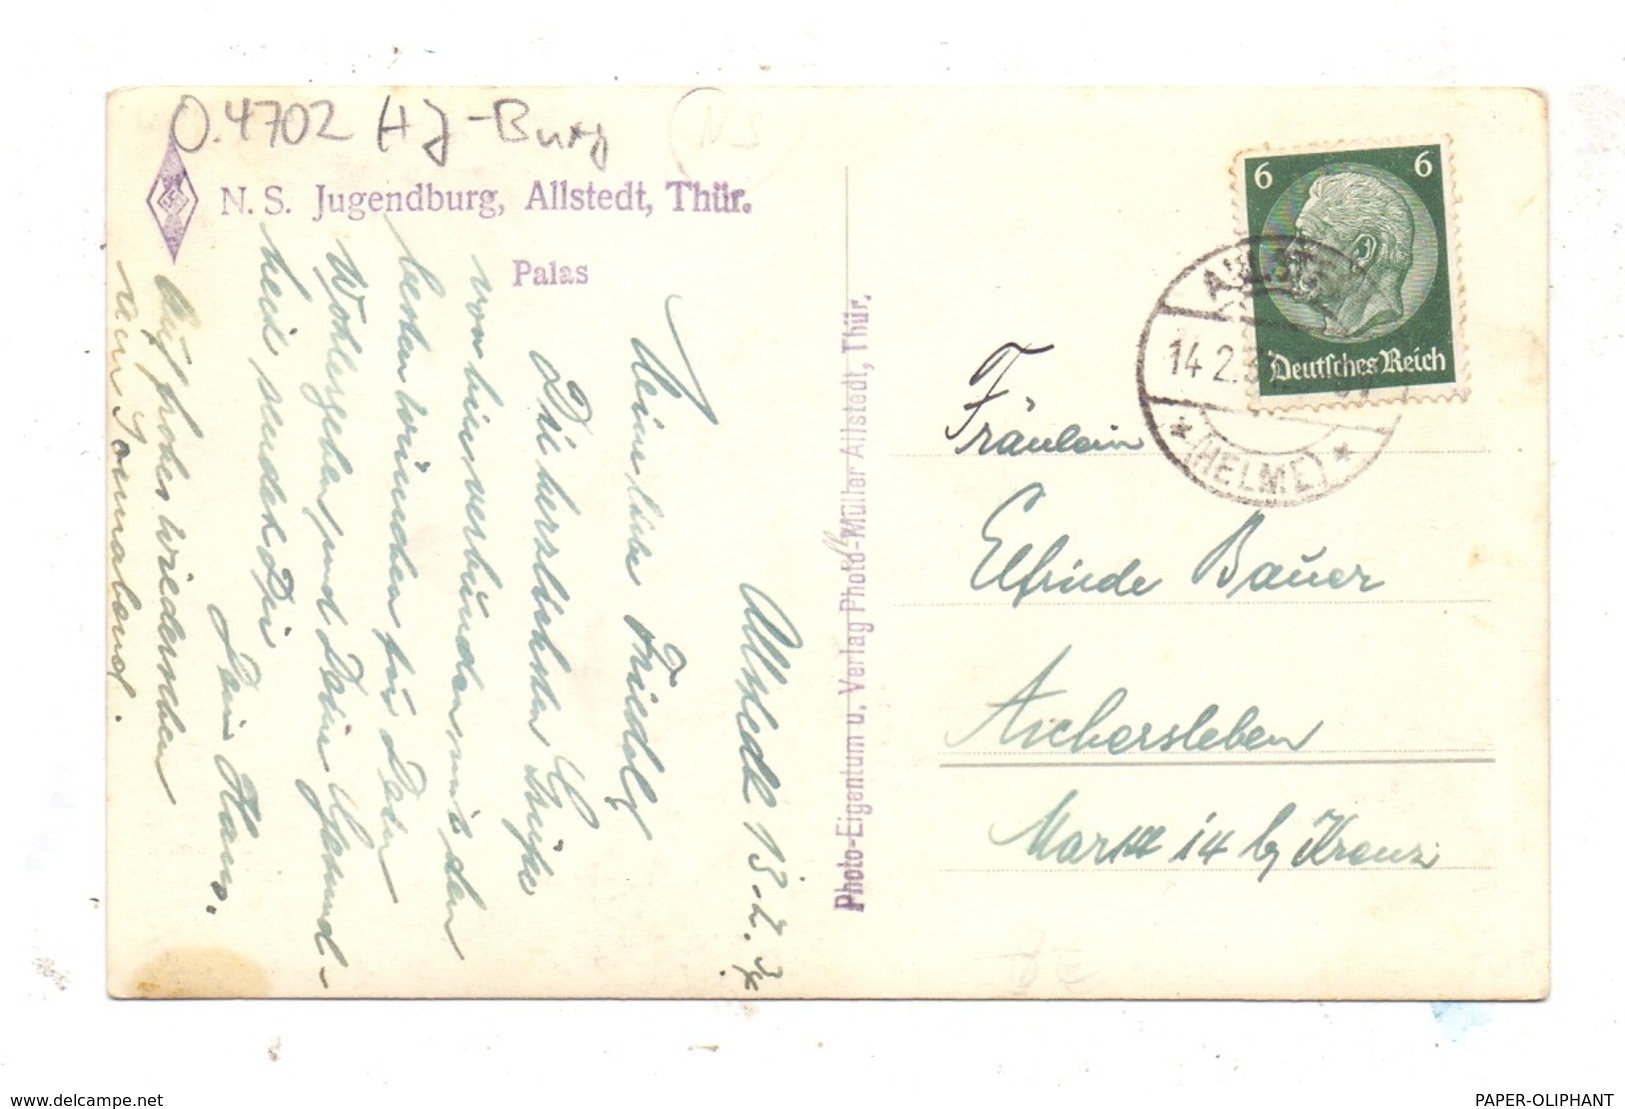 O.4702 HJ-Burg
NS
N. S. Jugendburg, Allstedt, Thür.
Palas
Allstedt 13.2.34
Meine liebe Friedly
Die herzlichsten Grüße
von hier verbunden mit den
besten Wünschen für Dein
Wohlergehen und Deine Gesund-
heit sendet Dir
Dein Hans.
Auf frohes Wiedersehen
am Sonnabend.
Photo-Eigentum u. Verlag Photo-Müller Allstedt, Thür.
6 6
Deutsches Reich
14.2.3
(HELME)
Fräulein
Elfriede Bauer
Aschersleben
Markt 14 b/ Kranz
www.delcampe.net
PAPER-OLIPHANT